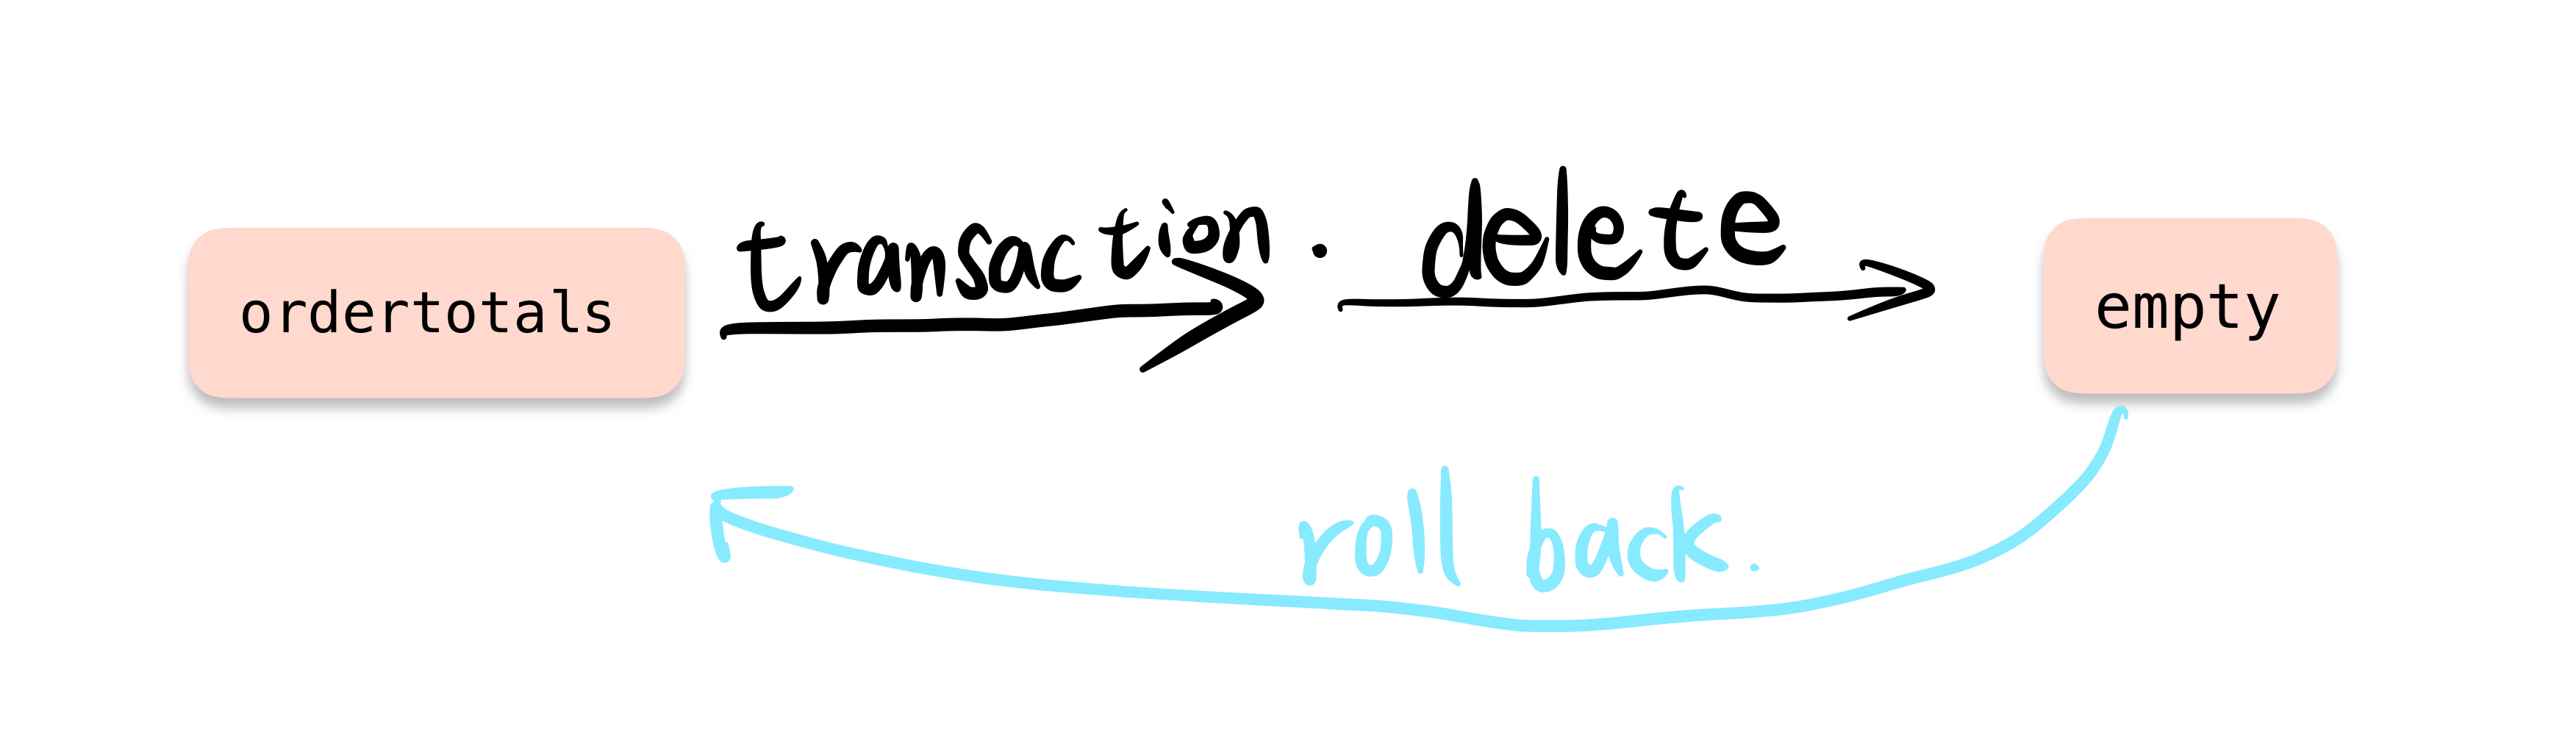 ordertotals
transaction. delete
empty
roll back.